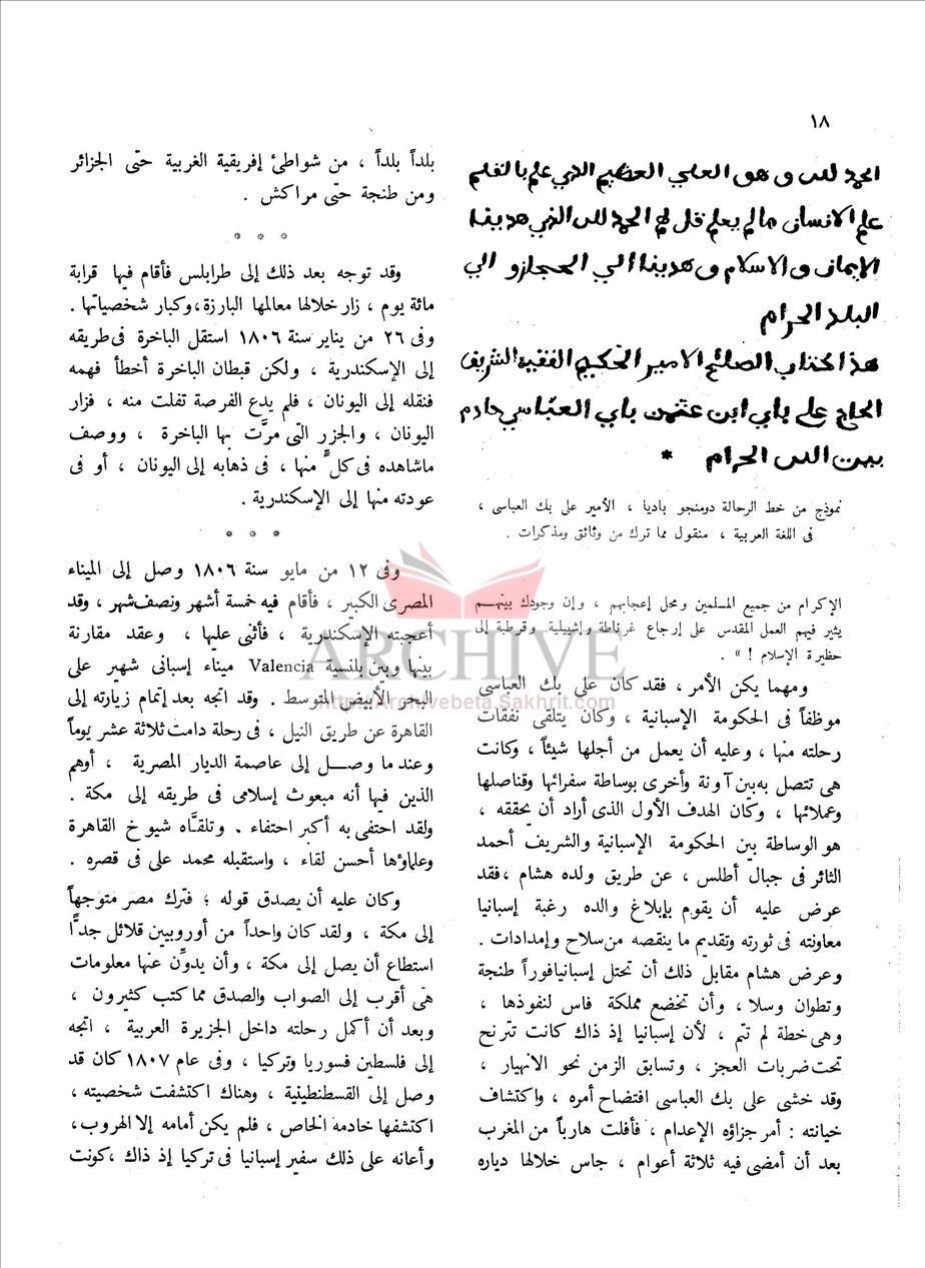 ١٨
الحمد لله وهو العلي العظيم الذي علم بالقلم
علم الانسان ما لم يعلم قل لم الحمد لله الذي هدينا
الإيمان والاسلام وهدينا الي الحجاز و الي
البلد الحرام
هذا الجناب الصالح الامير الحكيم الفقيه الشريف
الحاج علي باي ابن عثمن باي العباسي خادم
بيت الله الحرام *
نموذج من خط الرحالة دومنجو باديا ، الأمير على بك العباسى ،
فى اللغة العربية ، منقول مما ترك من وثائق ومذكرات .
الإكرام من جميع المسلمين ومحل إعجابهم ، وإن وجودك بينهم
يثير فيهم العمل المقدس على إرجاع غرناطة وإشبيلية وقرطبة إلى
حظيرة الإسلام ! » .
ومهما يكن الأمر ، فقد كان على بك العباسى
موظفاً فى الحكومة الإسبانية ، وكان يتلقى نفقات
رحلته منها ، وعليه أن يعمل من أجلها شيئاً ، وكانت
هى تتصل به بين آونة وأخرى بوساطة سفرائها وقناصلها
وعملائها ، وكان الهدف الأول الذى أراد أن يحققه ،
هو الوساطة بين الحكومة الإسبانية والشريف أحمد
الثائر فى جبال أطلس ، عن طريق ولده هشام ، فقد
عرض عليه أن يقوم بإبلاغ والده رغبة إسبانيا
معاونته فى ثورته وتقديم ما ينقصه من سلاح وإمدادات .
وعرض هشام مقابل ذلك أن تحتل إسبانيا فوراً طنجة
وتطوان وسلا ، وأن تخضع مملكة فاس لنفوذها ،
وهى خطة لم تتم ، لأن إسبانيا إذ ذاك كانت تترنح
تحت ضربات العجز ، وتسابق الزمن نحو الانهيار ،
وقد خشى على بك العباسى افتضاح أمره ، واكتشاف
خيانته : أمر جزاؤه الإعدام ، فأفلت هارباً من المغرب
بعد أن أمضى فيه ثلاثة أعوام ، جاس خلالها دياره
بلداً بلداً ، من شواطئ إفريقية الغربية حتى الجزائر
ومن طنجة حتى مراكش .
* * *
وقد توجه بعد ذلك إلى طرابلس فأقام فيها قرابة
مائة يوم ، زار خلالها معالمها البارزة ، وكبار شخصياتها .
وفى ٢٦ من يناير سنة ١٨٠٦ استقل الباخرة فى طريقه
إلى الإسكندرية ، ولكن قبطان الباخرة أخطأ فهمه
فنقله إلى اليونان ، فلم يدع الفرصة تفلت منه ، فزار
اليونان ، والجزر التى مرَّت بها الباخرة ، ووصف
ماشاهده فى كلٍّ منها ، فى ذهابه إلى اليونان ، أو فى
عودته منها إلى الإسكندرية .
* * *
وفى ١٢ من مايو سنة ١٨٠٦ وصل إلى الميناء
المصرى الكبير ، فأقام فيه خمسة أشهر ونصف شهر ، وقد
أعجبته الإسكندرية ، فأثنى عليها ، وعقد مقارنة
بينها وبين بلنسية Valencia ميناء إسبانى شهير على
البحر الأبيض المتوسط . وقد اتجه بعد إتمام زيارته إلى
القاهرة عن طريق النيل ، فى رحلة دامت ثلاثة عشر يوماً
وعند ما وصل إلى عاصمة الديار المصرية ، أوهم
الذين فيها أنه مبعوث إسلامى فى طريقه إلى مكة .
ولقد احتفى به أكبر احتفاء . وتلقَّاه شيوخ القاهرة
وعلماؤها أحسن لقاء ، واستقبله محمد على فى قصره .
وكان عليه أن يصدق قوله ؛ فترك مصر متوجهاً
إلى مكة ، ولقد كان واحداً من أوروبيين قلائل جدًّا
استطاع أن يصل إلى مكة ، وأن يدوِّن عنها معلومات
هى أقرب إلى الصواب والصدق مما كتب كثيرون ،
وبعد أن أكمل رحلته داخل الجزيرة العربية ، اتجه
إلى فلسطين فسوريا وتركيا ، وفى عام ١٨٠٧ كان قد
وصل إلى القسطنطينية ، وهناك اكتشفت شخصيته ،
اكتشفها خادمه الخاص ، فلم يكن أمامه إلا الهروب ،
وأعانه على ذلك سفير إسبانيا فى تركيا إذ ذاك ، كونت
ARCHIVE
http://Archivebeta.Sakhrit.com